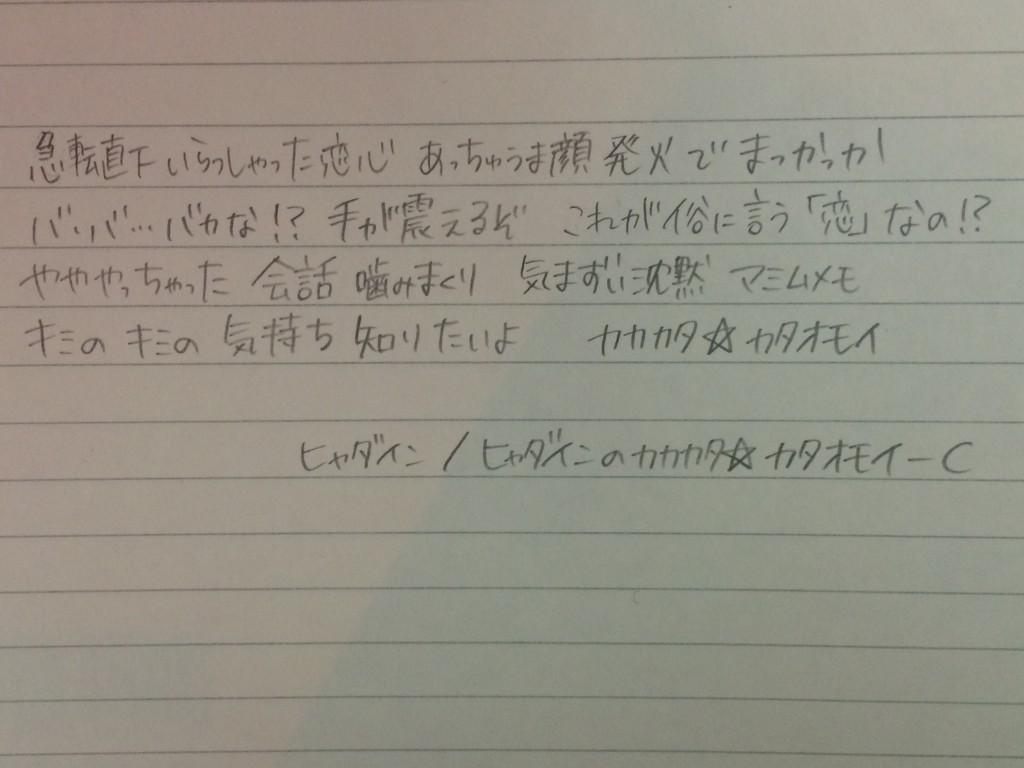 急転直下いらっしゃった恋心 あっちゅうま顔発火でまっかっか
バ・バ…バカな!? 手が震えるぞ これが俗に言う「恋」なの!?
やややっちゃった 会話 噛みまくり 気まずい沈黙 マミムメモ
キミの キミの 気持ち 知りたいよ カカカタ☆カタオモイ
ヒャダイン / ヒャダインのカカカタ☆カタオモイ－C